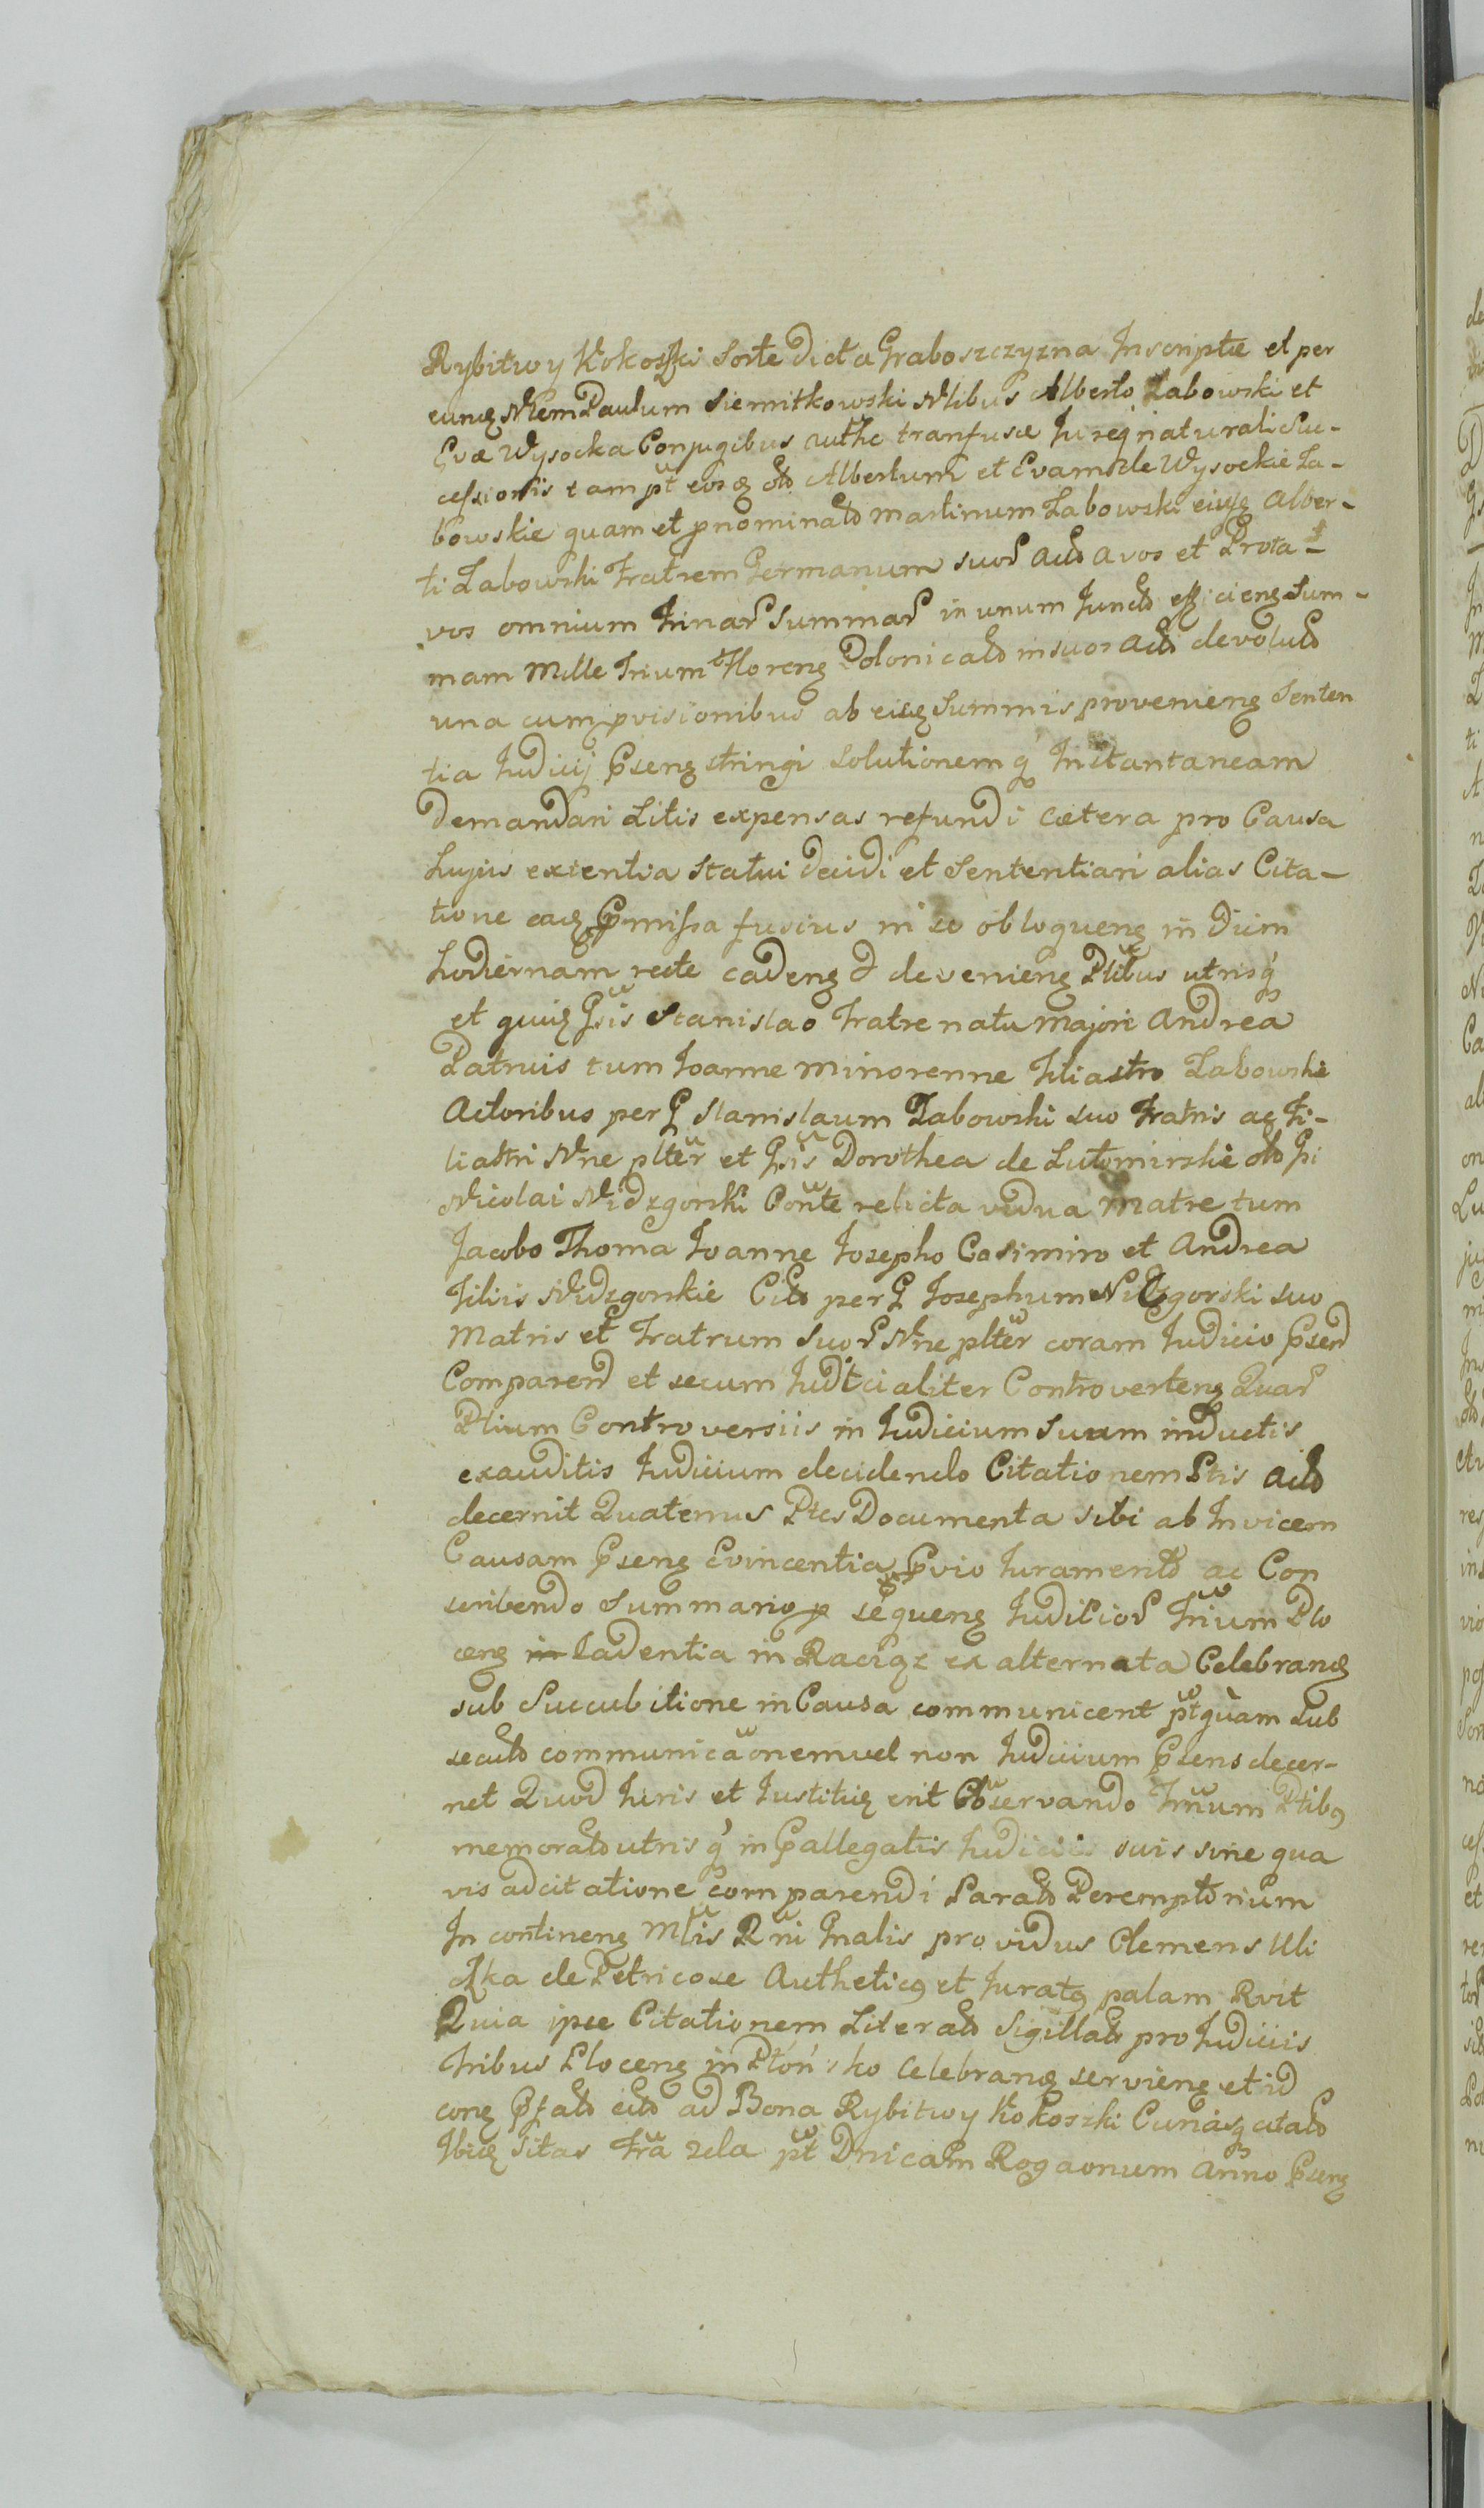 Rybitwy Kokoszki Sorte dicta Graboszczyzna Inscriptæ et per
eund Nlem Paulum Siemitkowski Nlibus Alberto Zabowski et
Evæ Wysocka Conjugibus authe tranfusæ Jureq naturali Suc-
cessionis tam pt eosd olo Albertum et Evam de Wysockie Za-
bowskie quam et pnominato Martinum Zabowski eiusd Alber-
ti Zabowski Fratrem Germanum suos Avos et Prota-
vos omnium trinar Summar in unum Junct efficiens Sum-
mam Mille Trium Florens Polonicalo in suos devolut
una cum pvisionibus ab eisd Summis proveniens Senten
tia Judicij Psens stringi Solutionem q Instantaneam
demandari Litis expensas refundi cætera pro Causa
hujus exientia Statui decidi et Sententiari alias Cita-
tione ead Pmissa fusius in se obloquens in diem
hodiernam recte cadens deveniens Ptibus utrisq
et Gsis Stanislao Fratre natu majori Andrea
Patruis tum Joanne minorenne Filiastro Zabowskie
Actoribus per G Stanislaum Zabowski suo Fratris ac Fi-
liastri Nne plter et Gsis Dorothea de Lutomirskie olo Gi
Nicolai Nidzgorski Conte relicta vidua Matre tum
Jacobo Thoma Joanne Josepho Casimiro et Andrea
Filiis Nidzgorskie Cito per G Josephum Nidzgorski suo
Matris et Fratrum Suor Nne plter coram Judicio Psend
Comparend et secum Judicialiter Controvertens Quar
Ptium Controversiis in Judicium Suum inductis
exauditis Judicium decidendo Citationem Ptis
decernit Quatenus Ptes Documenta sibi ab Invicem
Causam Psens Evincentia Pvio Juramento ac Con
scribendo Summario p sequens Judicior Trium Plo
cens in Cadentia in Raciąż ex alternata Celebrand
sub Succubitione in Causa communicent pt quam sub
secuto communicaonem vel non Judicium Psens decer-
net Quod Juris et Justitiæ erit Observando Trnum Ptibq
memorato utrisq in Pallegatis Judiciis suis sine qua
vis adcitatione comparendi Parato Peremptorium
In continens Mlis Rni Gnalis providus Clemens Uli
zka de Petricose Autheticq et Juratq palam Rvit
Quia ipse Citationem Literalo Sigillalo pro Judiciis
Tribus Plocens in Płońsko Celebrand serviens et id
cong Pfato ad Bona Rybitwy Kokoszki Cunasq citato
Ibid Sitas Fria 2da pt Dnicam Rogaonum Anno Psens